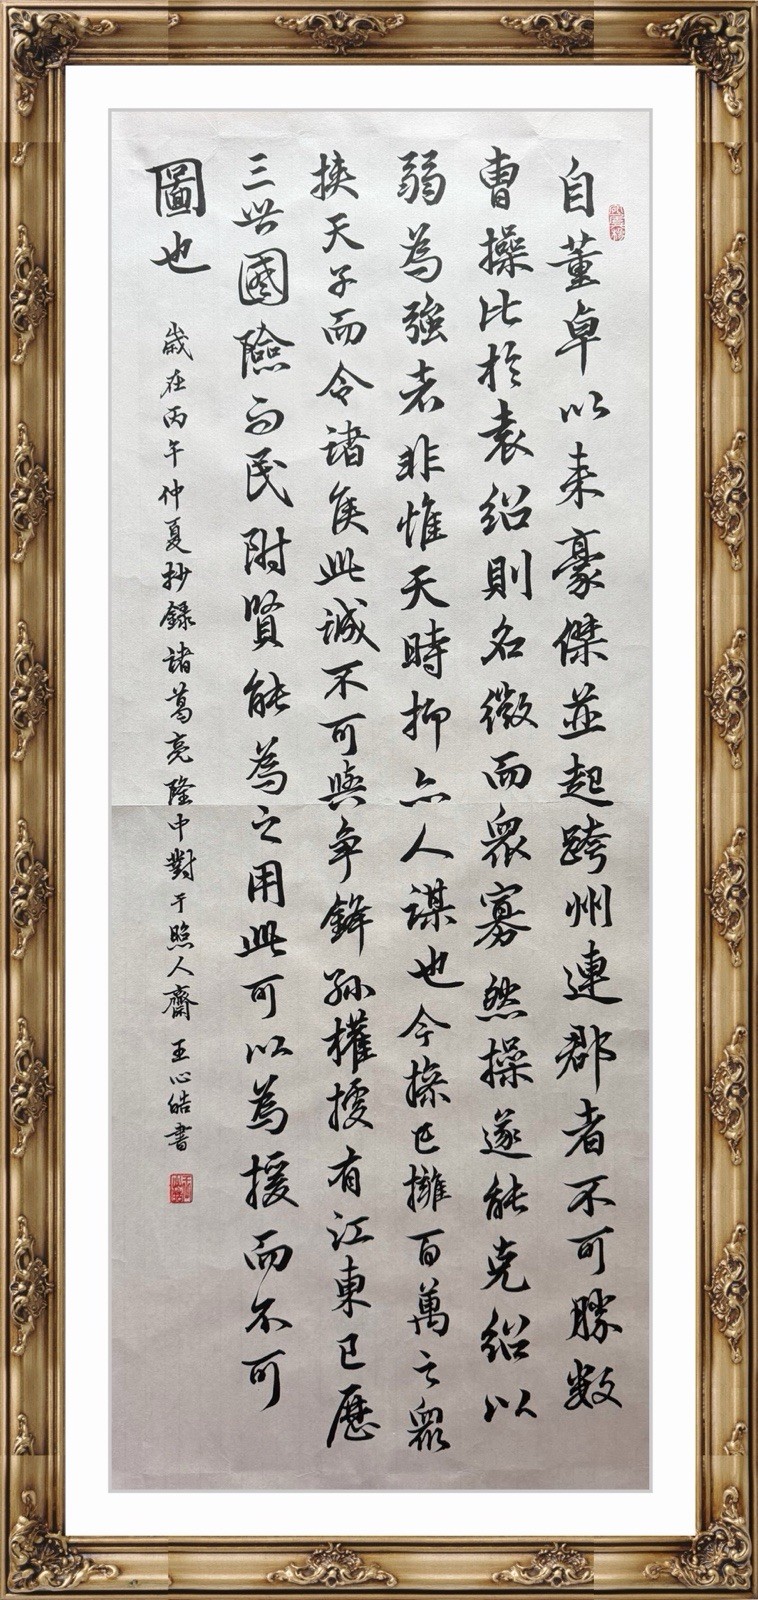 自董卓以来豪傑並起跨州連郡者不可勝数
曹操比於袁紹則名微而眾寡然操遂能克紹以
弱為強者非惟天時抑亦人謀也今操已擁百萬之眾
挾天子而令諸侯此誠不可與争鋒孫權據有江東已歷
三世國險而民附賢能為之用此可以為援而不可
圖也
歲在丙午仲夏抄録諸葛亮隆中對于照人齋王心皓書